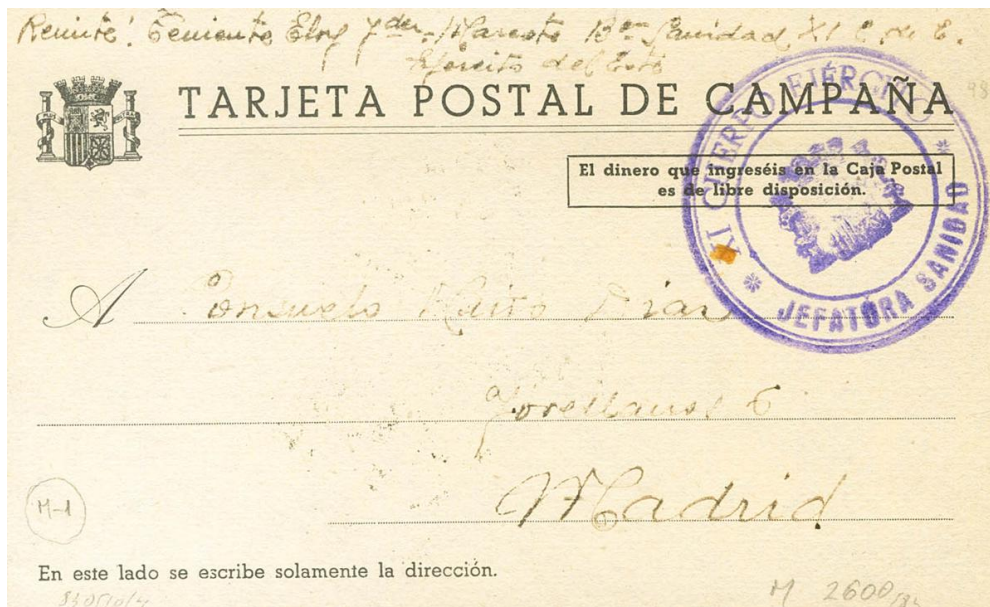 Remite: Teniente Eloy Sanidad XI C. de E.
Ejército del Este
TARJETA POSTAL DE CAMPAÑA
El dinero que ingreséis en la Caja Postal
es de libre disposición.
XI CUERPO EJÉRCITO
* JEFATURA SANIDAD *
A Consuelo Díaz
6
Madrid
M-1
En este lado se escribe solamente la dirección.
M 2600